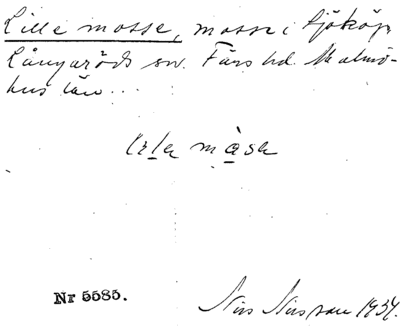 Lille mosse, mosse i Sjököp
Långaröds sn. Färs hd. Malmö-
hus län...
måsa
Nr 5585.
Nils Nilsson 1934.